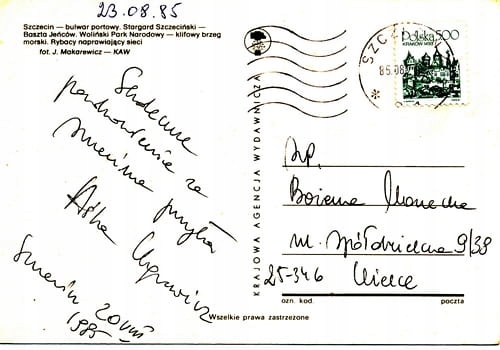 23.08.85
Szczecin — bulwar portowy, Stargard Szczeciński —
Baszta Jeńców, Woliński Park Narodowy — klifowy brzeg
morski. Rybacy naprawiający sieci
fot. J. Makarewicz — KAW
Serdeczne
pozdrowienia ze
przesyła
Aśka
1985
KRAJOWA AGENCJA WYDAWNICZA
SZCZ
85.08
Polska 500
Bożena
ul. Spółdzielcza 9/39
25-346 Kielce
ozn. kod. poczta
Wszelkie prawa zastrzeżone